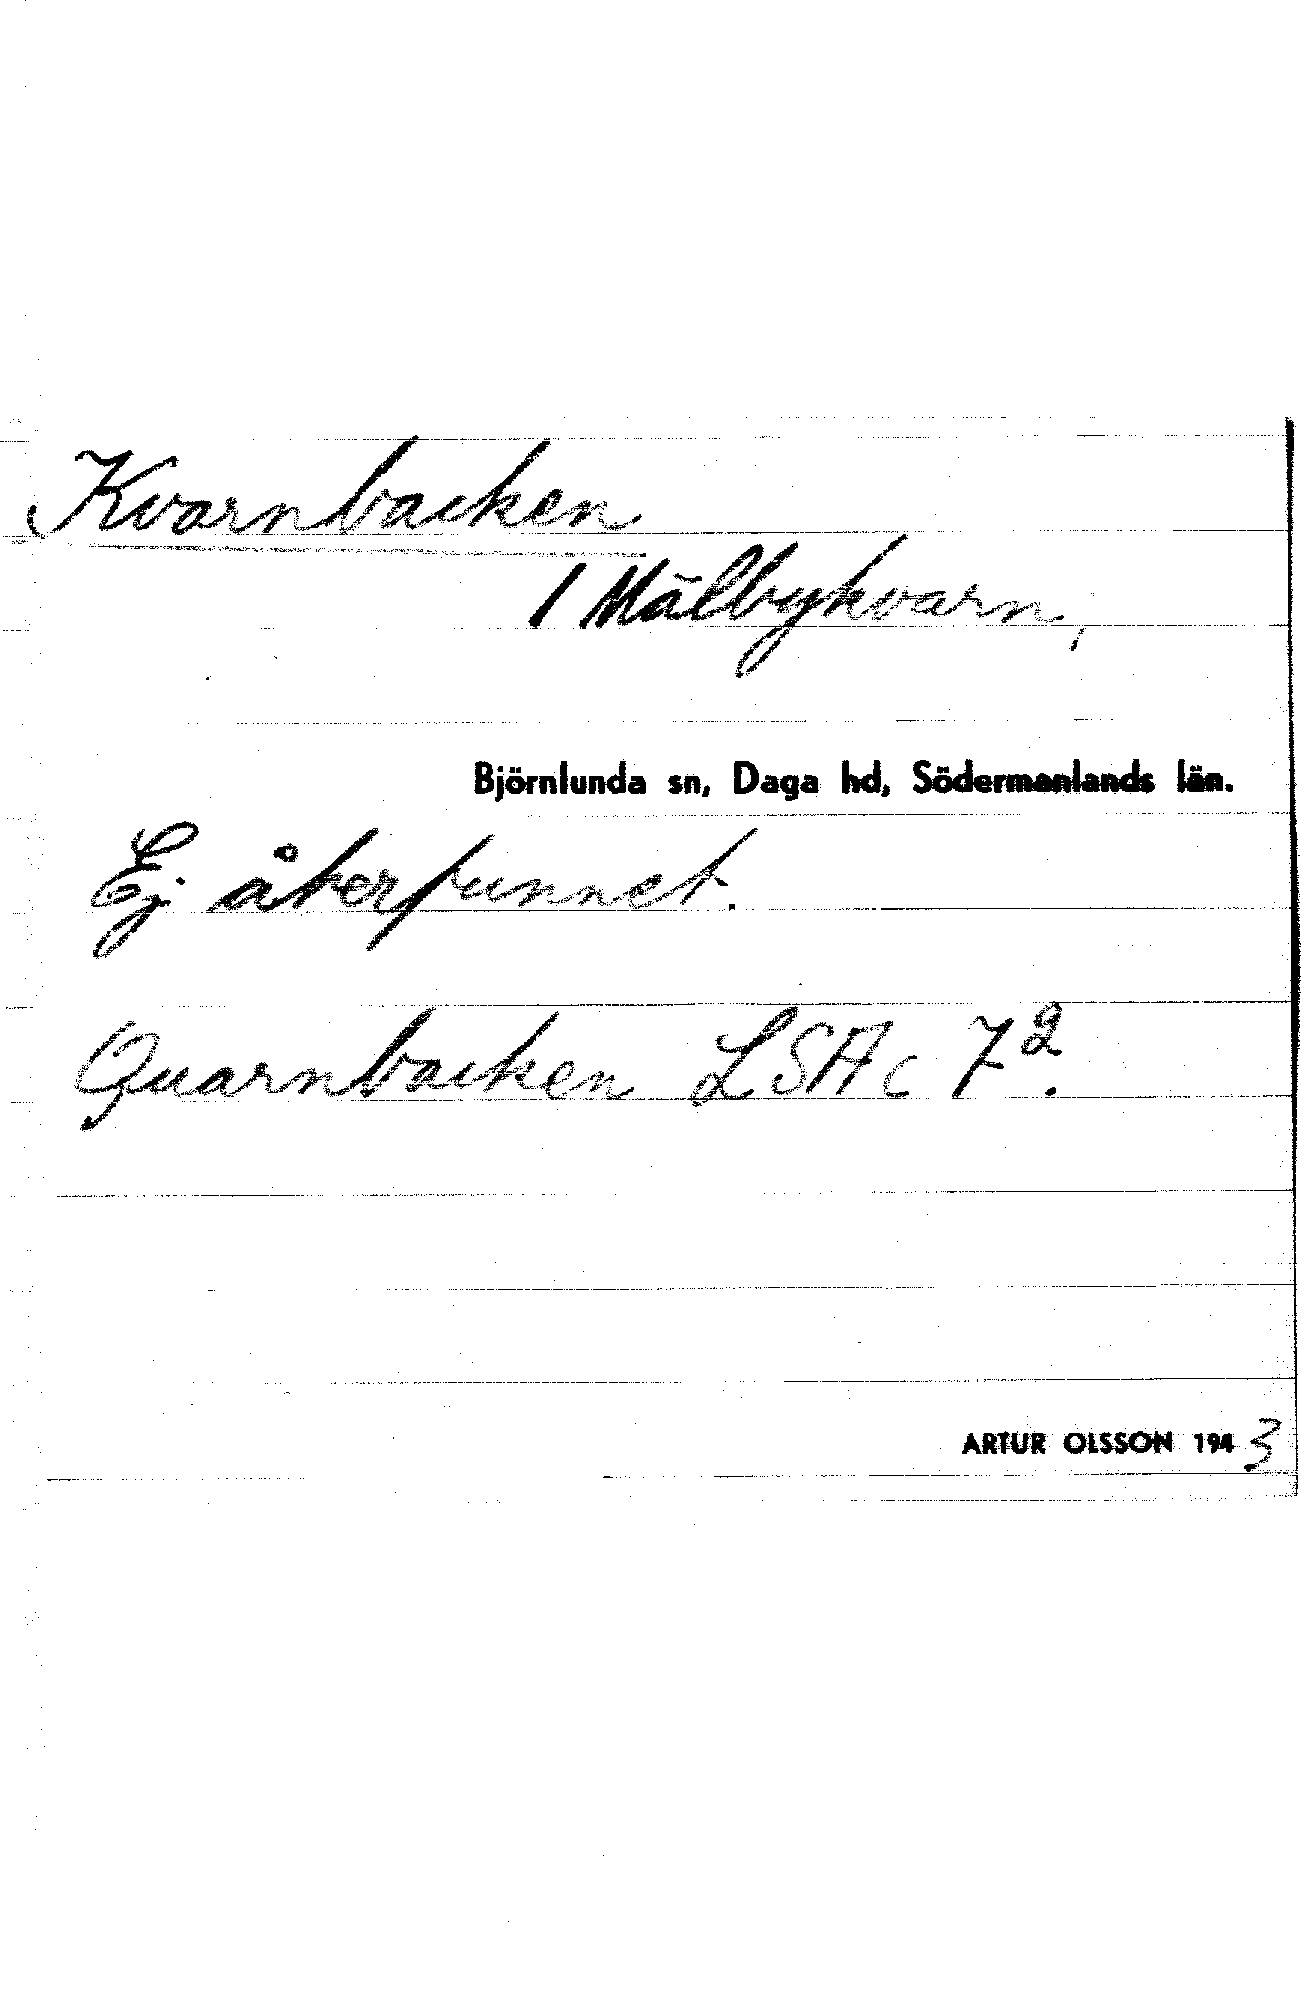 Kvarnbacken
1 Målbykvarn,
Björnlunda sn, Daga hd, Södermanlands län.
Ej återfunnet.
Quarnbacken LSA c 7².
ARTUR OLSSON 1943